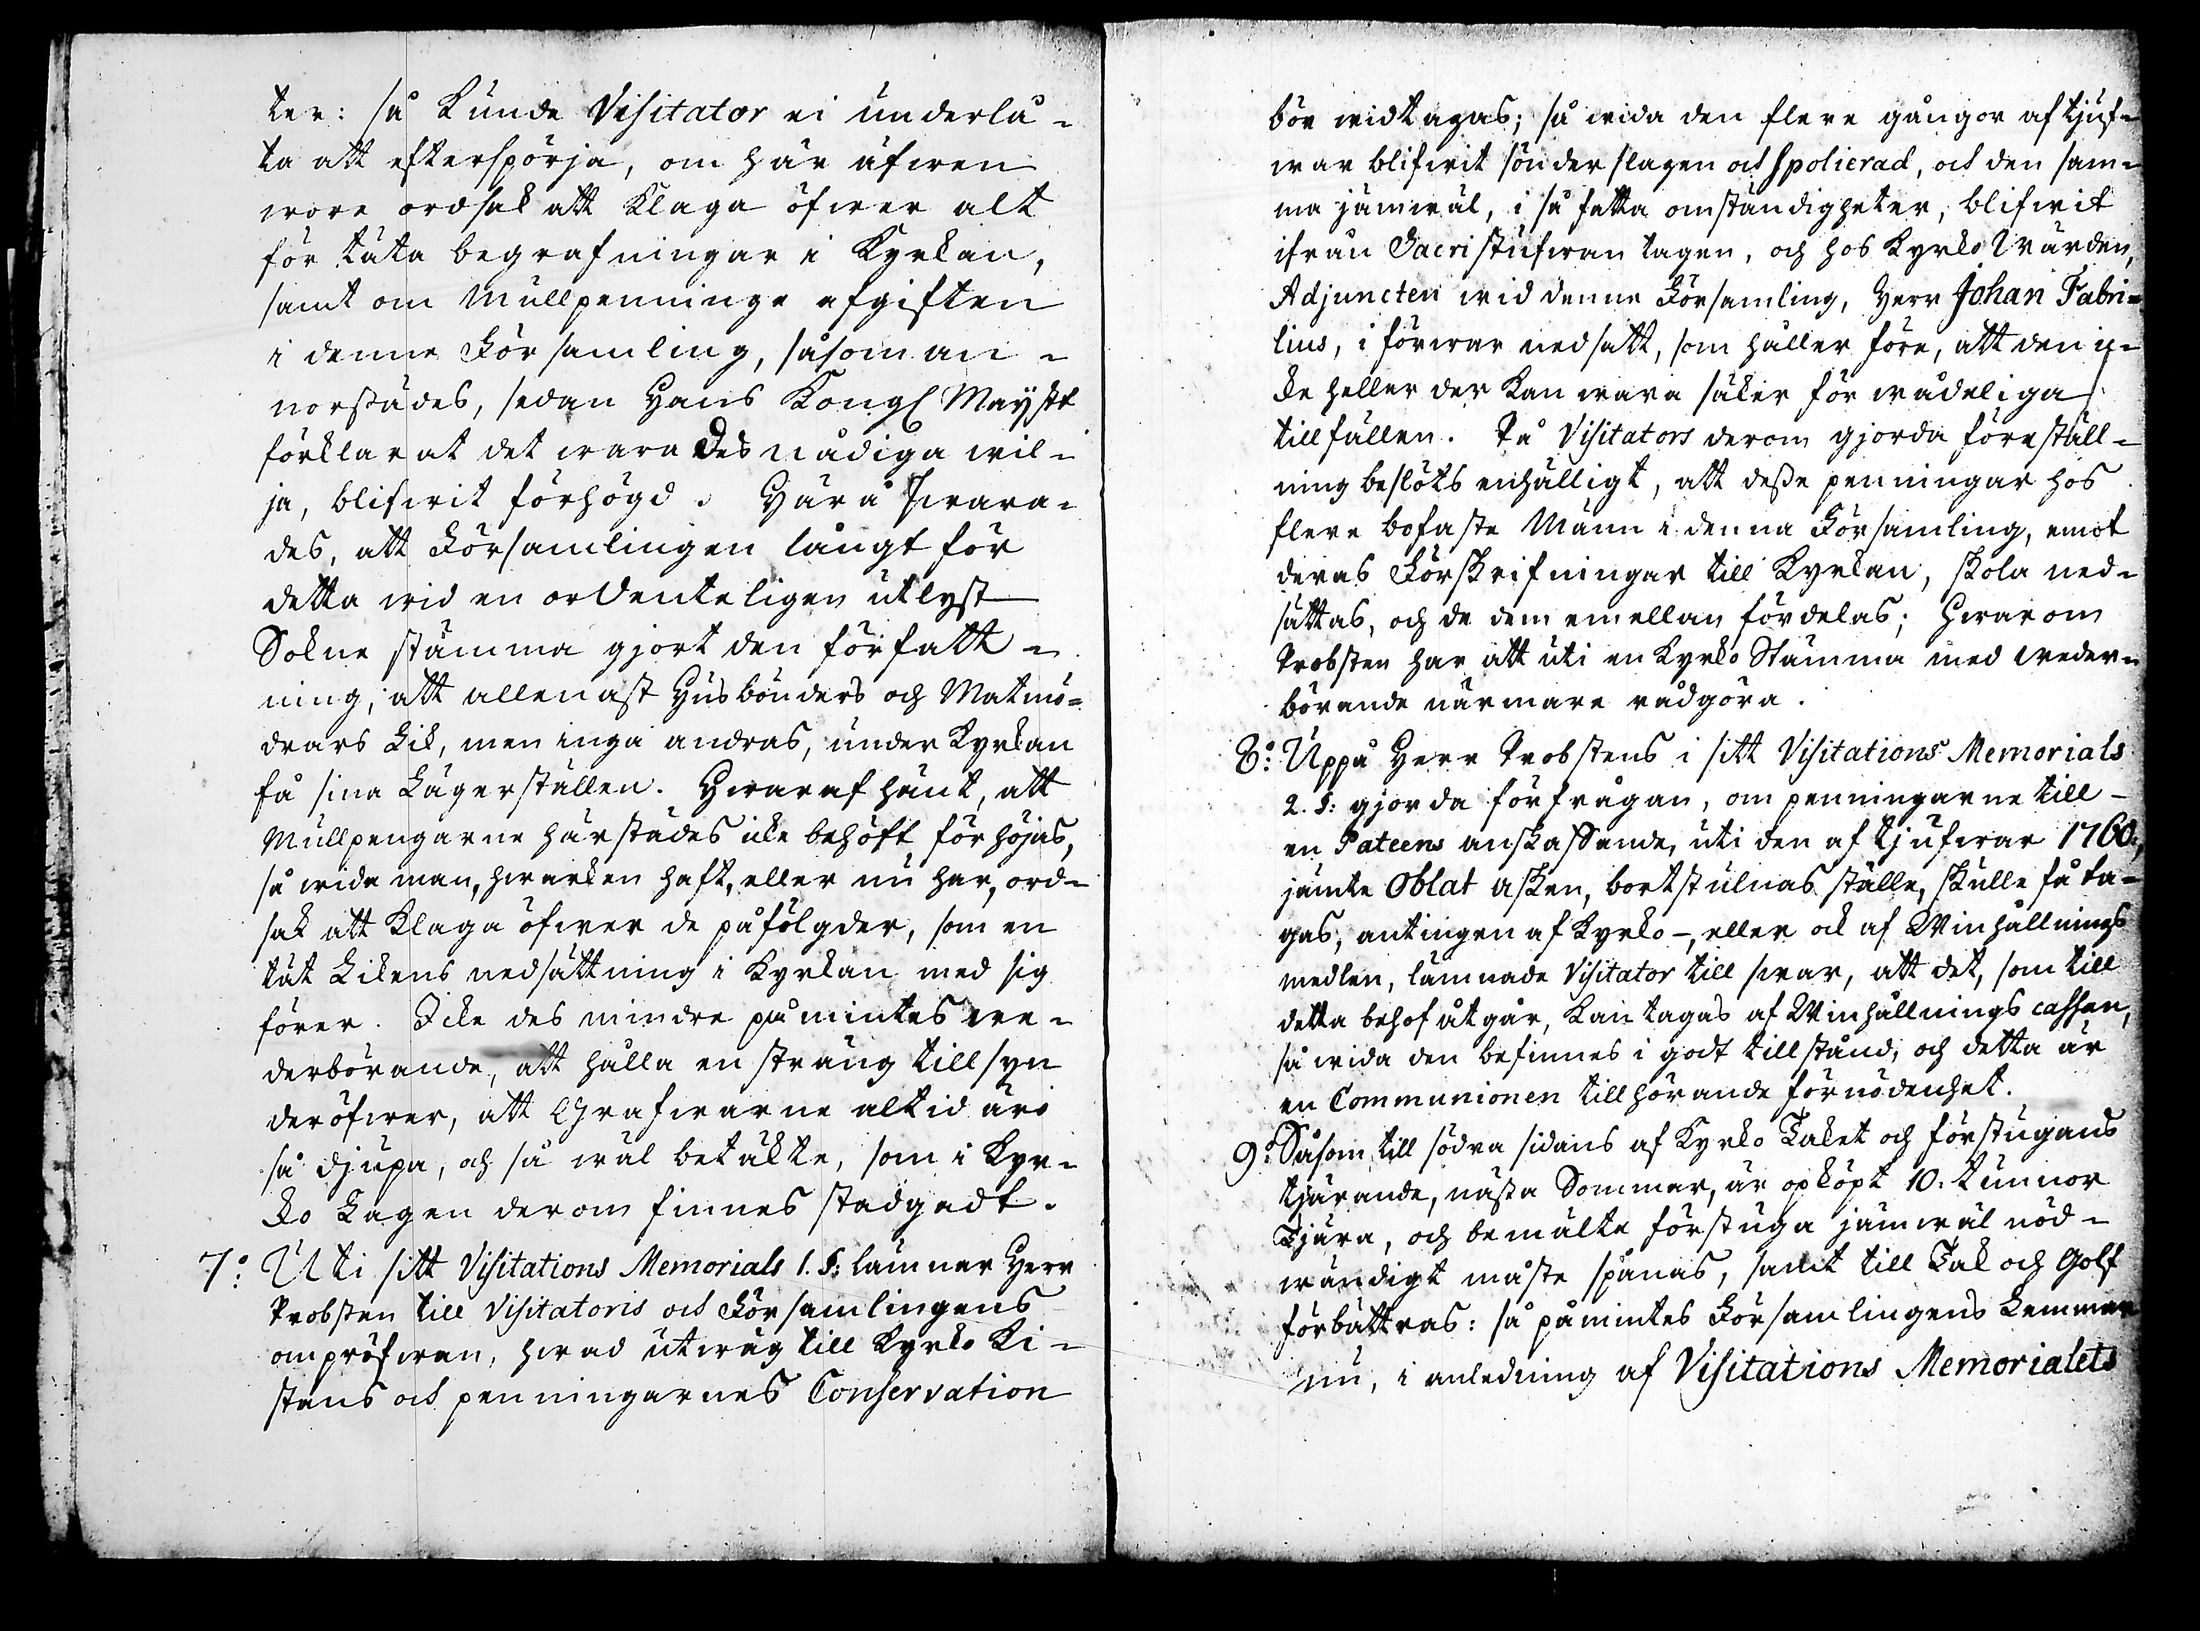 ter: så kunde Visitator ei underlå-
ta att efterspörja, om här äfwen
wore orsak att klaga öfwer alt
för täta begrafningar i Kyrkan,
samt om Mullpenninge afgiften
i denne Församling, såsom an-
norstädes, sedan Hans Kongl Mayst
förklarat det wara Des nådiga wil-
ja, blifwit förhögd. Härå swara-
des, att Församlingen långt för
detta wid en ordenteligen utlyst
Sokne stämma gjort den författ-
ning, att allenast Husbönders och Matmo-
drars Lik, men inga andras, under Kyrkan
få sina Lägerställen. Hwaraf händt, att
Mullpengarne härstädes icke behöft förhöjas,
så wida man, hwarken haft, eller nu har, ord-
sak att klaga öfwer de påfölgder, som en
tät Likens nedsättning i Kyrkan med sig
förer. Icke des mindre påmintes we-
derbörande, att hålla en sträng tillsyn
deröfwer, att Grafwarne altid äro
så djupa, och så wäl betäkte, som i Kyr-
ko Lagen derom finnes stadgadt.
7:o Uti sitt Visitations Memorials 1. §: lämnar Herr
Probsten till Visitatoris och Församlingens
ompröfwan, hwad utwäg till Kyrko Ki-
stans och penningarnes Conservation
bör widtagas; så wida den flere gångor af tjuf-
war blifwit sönderslagen och spolierad, och den sam-
ma jämwäl, i så fatta omständigheter, blifwit
ifrån Sacristufwan tagen, och hos Kyrko Wärden,
Adjuncten wid denne Församling, Herr Johan Fabri-
lius, i förwar nedsatt, som håller före, att den ic-
ke heller der kan wara säker för wådeliga
tillfällen. På Visitators derom gjorda föreställ-
ning beslöts enhälligt, att desse penningar hos
flere bofaste Männ i denna Församling, emot
deras Förskrifningar till Kyrkan, skola ned-
sättas, och de dem emellan fördelas; Hwarom
Probsten har att uti en Kyrko Stämma med weder-
börande närmare rådgöra.
8:o Uppå Herr Probstens i sitt Visitations Memorials
2. §: gjorda förfrågan, om penningarne till
en Pateens anskaffande, uti den af tjufwar 1760,
jämte Oblat asken, bortstulnas ställe, skulle få ta-
gas, antingen af Kyrko-, eller ock af Winhållnings
medlen, lämnade Visitator till swar, att det, som till
detta behof åtgår, kan tagas af Winhållnings cassan,
så wida den befinnes i godt tillstånd, och detta är
en Communionen tillhörande förnödenhet.
9:o Såsom till södra sidans af Kyrko Taket och förstugans
tjärande, nästa Sommar, är opköpt 10. tunnor
Tjära, och bemälte förstuga jämwäl nöd-
wändigt måste spånas, samt till Tak och Golf
förbättras: så påmintes Församlingens Lemmar
nu, i anledning af Visitations Memorialets